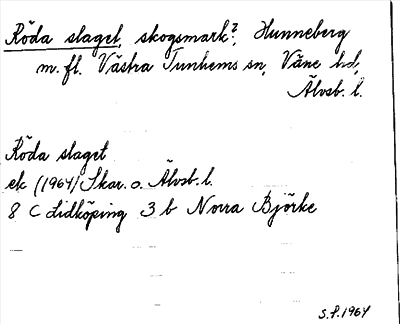 Röda slaget, skogsmark?, Hunneberg
m. fl. Västra Tunhems sn, Väne hd,
Älvsb. l.
Röda slaget
ek (1964) Skar. o. Älvsb. l.
8 C Lidköping 3 b Norra Björke
S.P. 1964